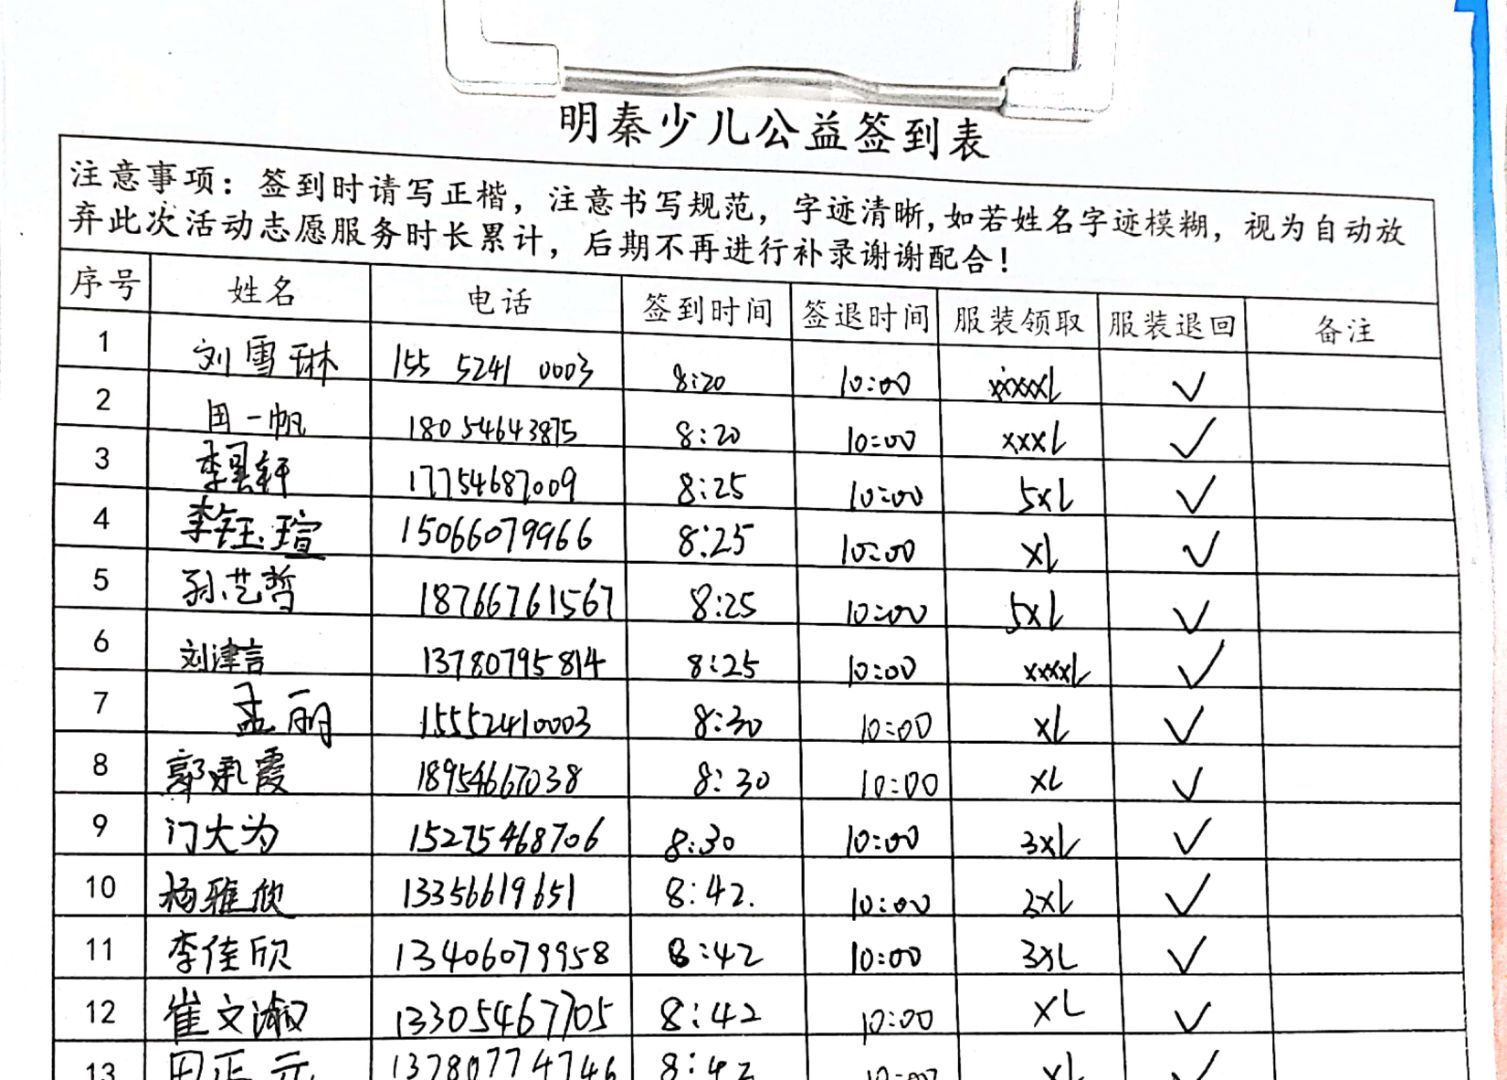 明秦少儿公益签到表
注意事项：签到时请写正楷，注意书写规范，字迹清晰，如若姓名字迹模糊，视为自动放
弃此次活动志愿服务时长累计，后期不再进行补录谢谢配合！
序号 姓名 电话 签到时间 签退时间 服装领取 服装退回 备注
1 刘雪琳 155 5241 0003 8:20 10:00 xxxxxL ✓
2 田一帆 18054643875 8:20 10:00 xxxL ✓
3 李昊轩 17754687009 8:25 10:00 5xL ✓
4 李钰瑄 15066079966 8:25 10:00 xL ✓
5 孙艺哲 18766761567 8:25 10:00 5xL ✓
6 刘津言 13780795814 8:25 10:00 xxxxL ✓
7 孟丽 15552410003 8:30 10:00 xL ✓
8 郭承霞 18954667038 8:30 10:00 xL ✓
9 门大为 15275468706 8:30 10:00 3xL ✓
10 杨雅欣 13356619651 8:42. 10:00 xL ✓
11 李佳欣 13406079958 8:42 10:00 3xL ✓
12 崔文淑 13305467705 8:42 10:00 xL ✓
13 田正元 13780774746 8:42 10:00 xL ✓